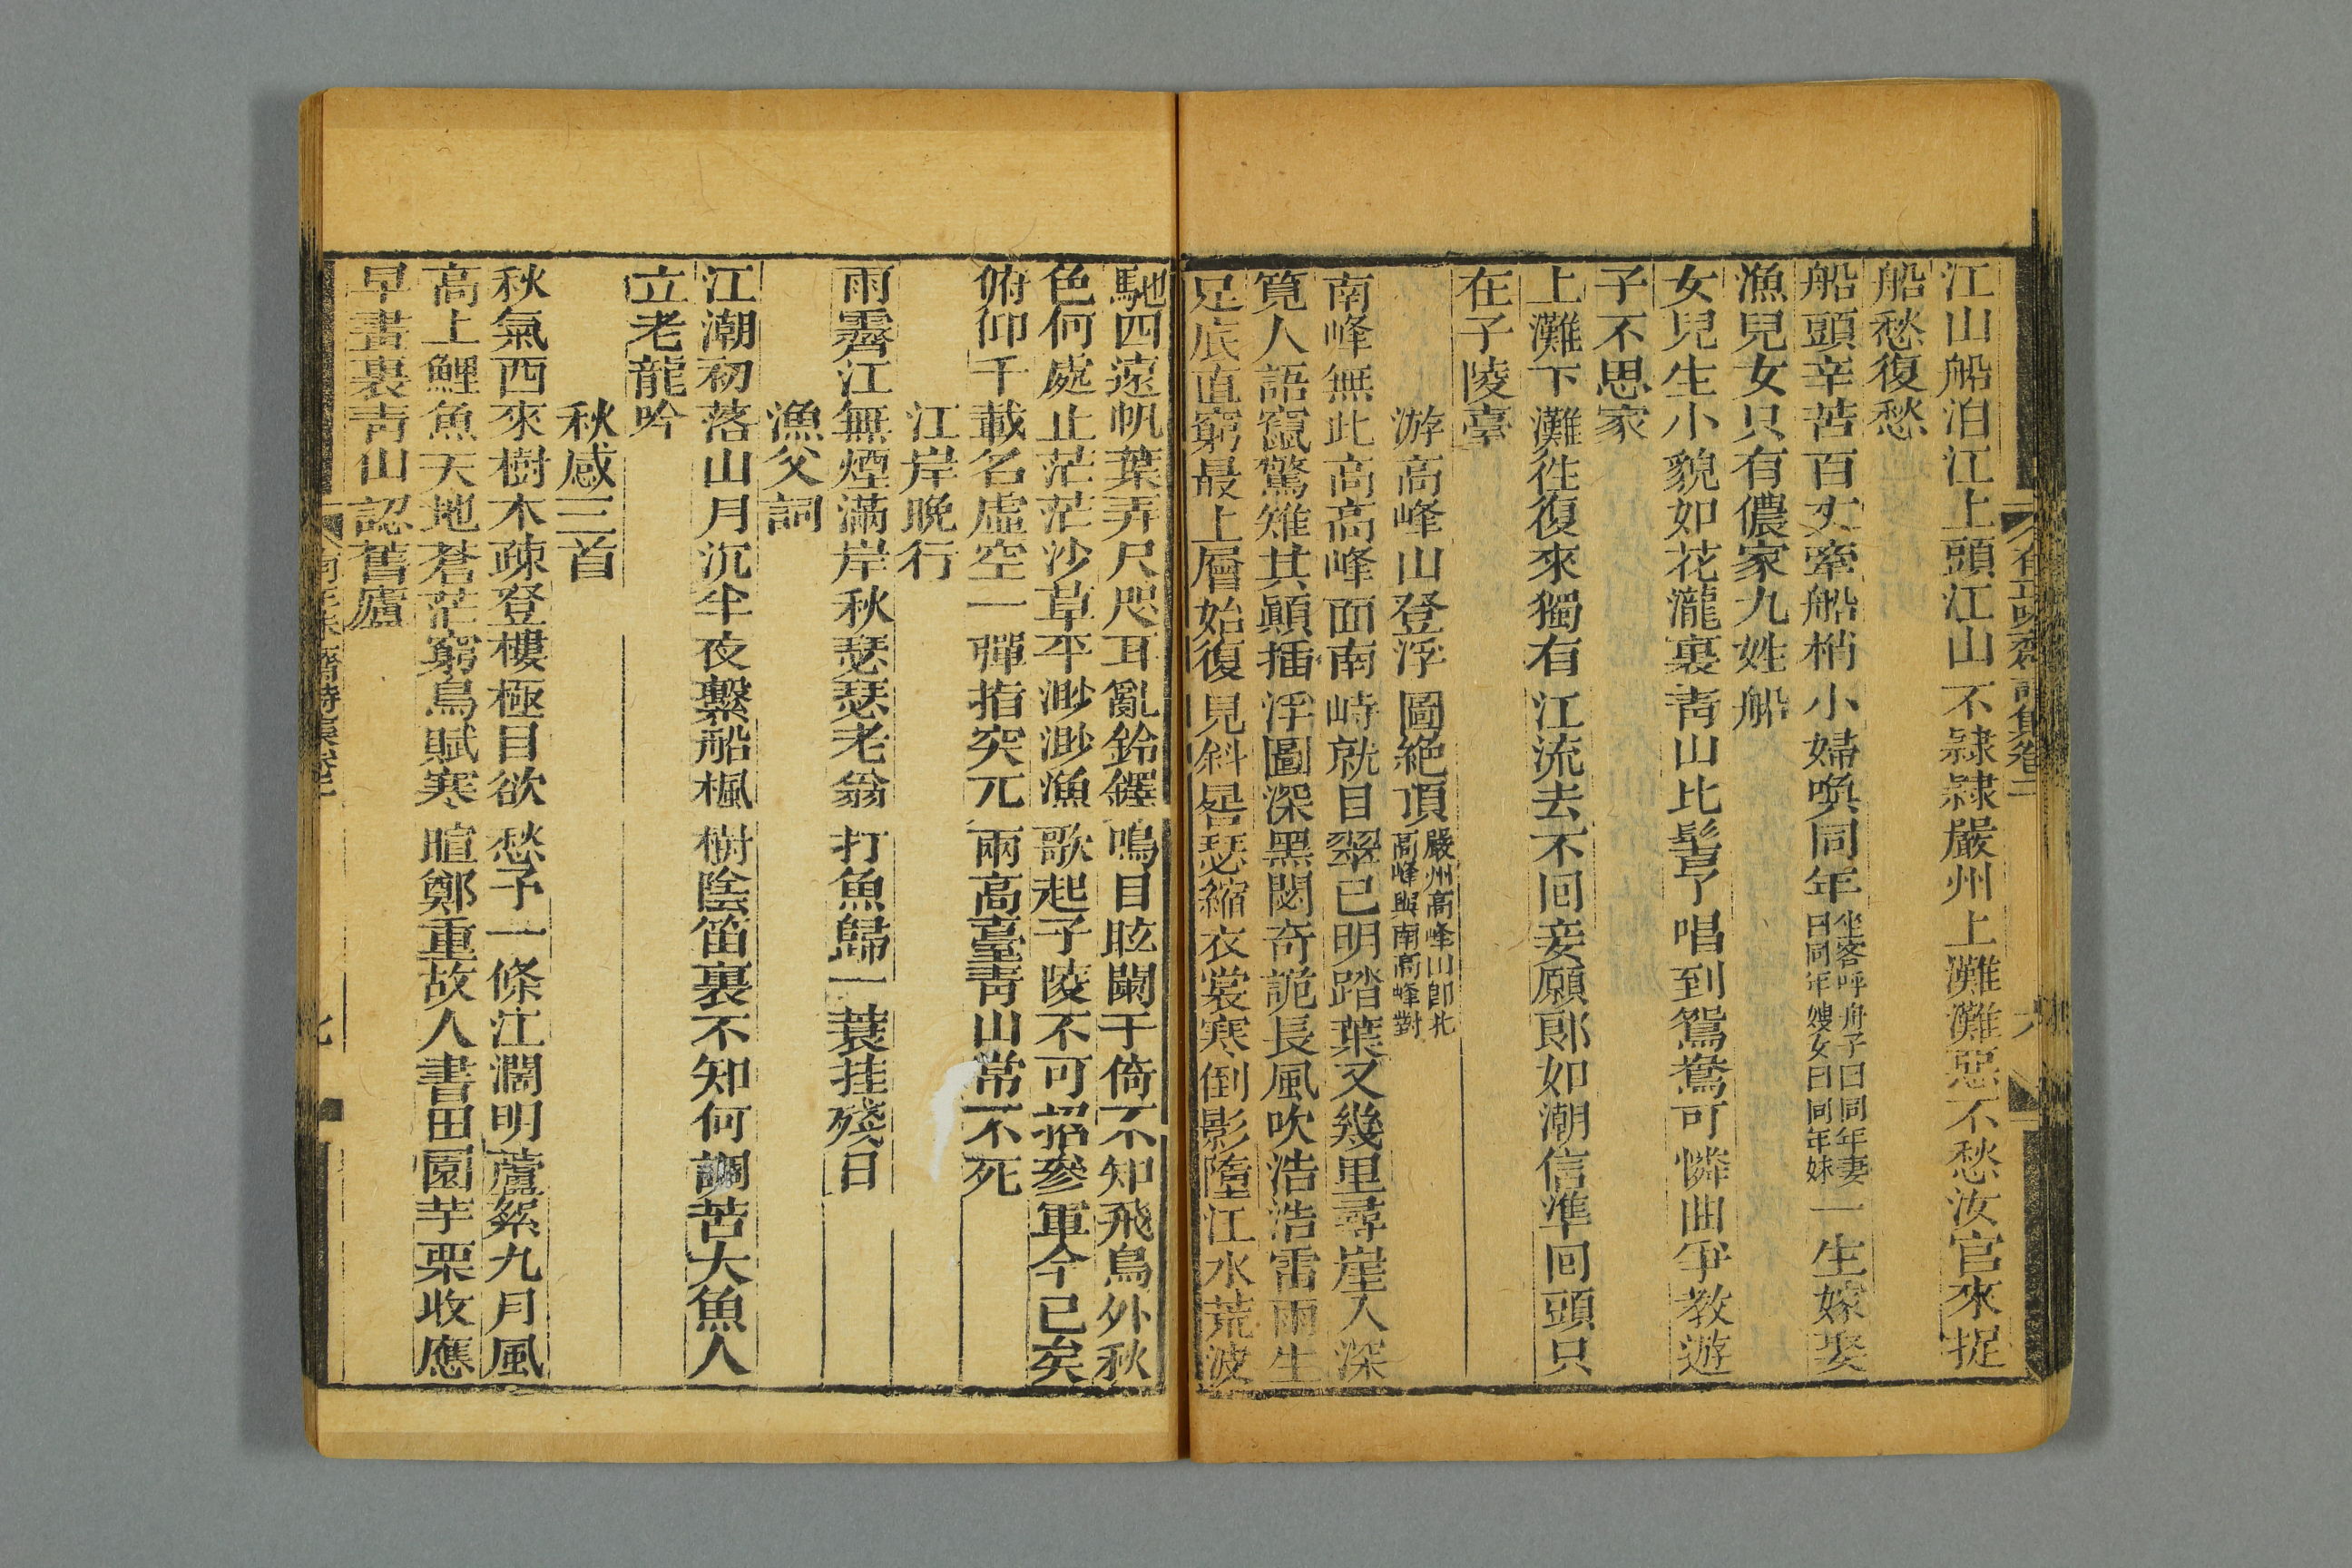 江山船泊江上頭江山不隷隷嚴州上灘灘惡不愁汝官來捉
船愁復愁
船頭辛苦百丈牽船梢小婦喚同年坐客呼舟子曰同年妻曰同年嫂女曰同年妹一生嫁娶
漁兒女只有儂家九姓船
女兒生小貌如花瀧裏靑山比髻丫唱到鴛鴦可憐曲爭教遊
子不思家
上灘下灘往復來獨有江流去不回妾願郎如潮信準回頭只
在子陵臺
游高峰山登浮圖絶頂嚴州高峰山卽北高峰與南高峰對
南峰無此高高峰面南峙就目翠已明踏葉又幾里尋崖入深
筧人語竄驚雉其顚插浮圖深黑閟奇詭長風吹浩浩雷雨生
足底直窮最上層始復見斜晷瑟縮衣裳寒倒影墮江水荒波
馳四遠帆葉弄尺咫耳亂鈴鐸鳴目眩闌干倚不知飛鳥外秋
色何處止茫茫沙草平渺渺漁歌起子陵不可招參軍今已矣
俯仰千載名虛空一彈指突兀兩高臺靑山常不死
江岸晚行
雨霽江無煙滿岸秋瑟瑟老翁打魚歸一蓑挂殘日
漁父詞
江潮初落山月沉半夜繫船楓樹陰笛裏不知何調苦大魚人
立老龍吟
秋感三首
秋氣西來樹木疎登樓極目欲愁予一條江濶明蘆絮九月風
高上鯉魚天地蒼茫窮鳥賦寒暄鄭重故人書田園芋栗收應
早畫裏靑山認舊廬